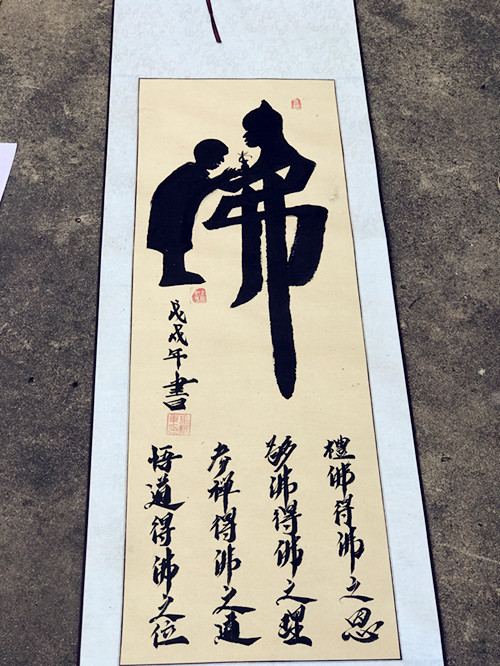 佛
戊戌年書
禮佛得佛之恩
敬佛得佛之理
參禪得佛之道
悟道得佛之位